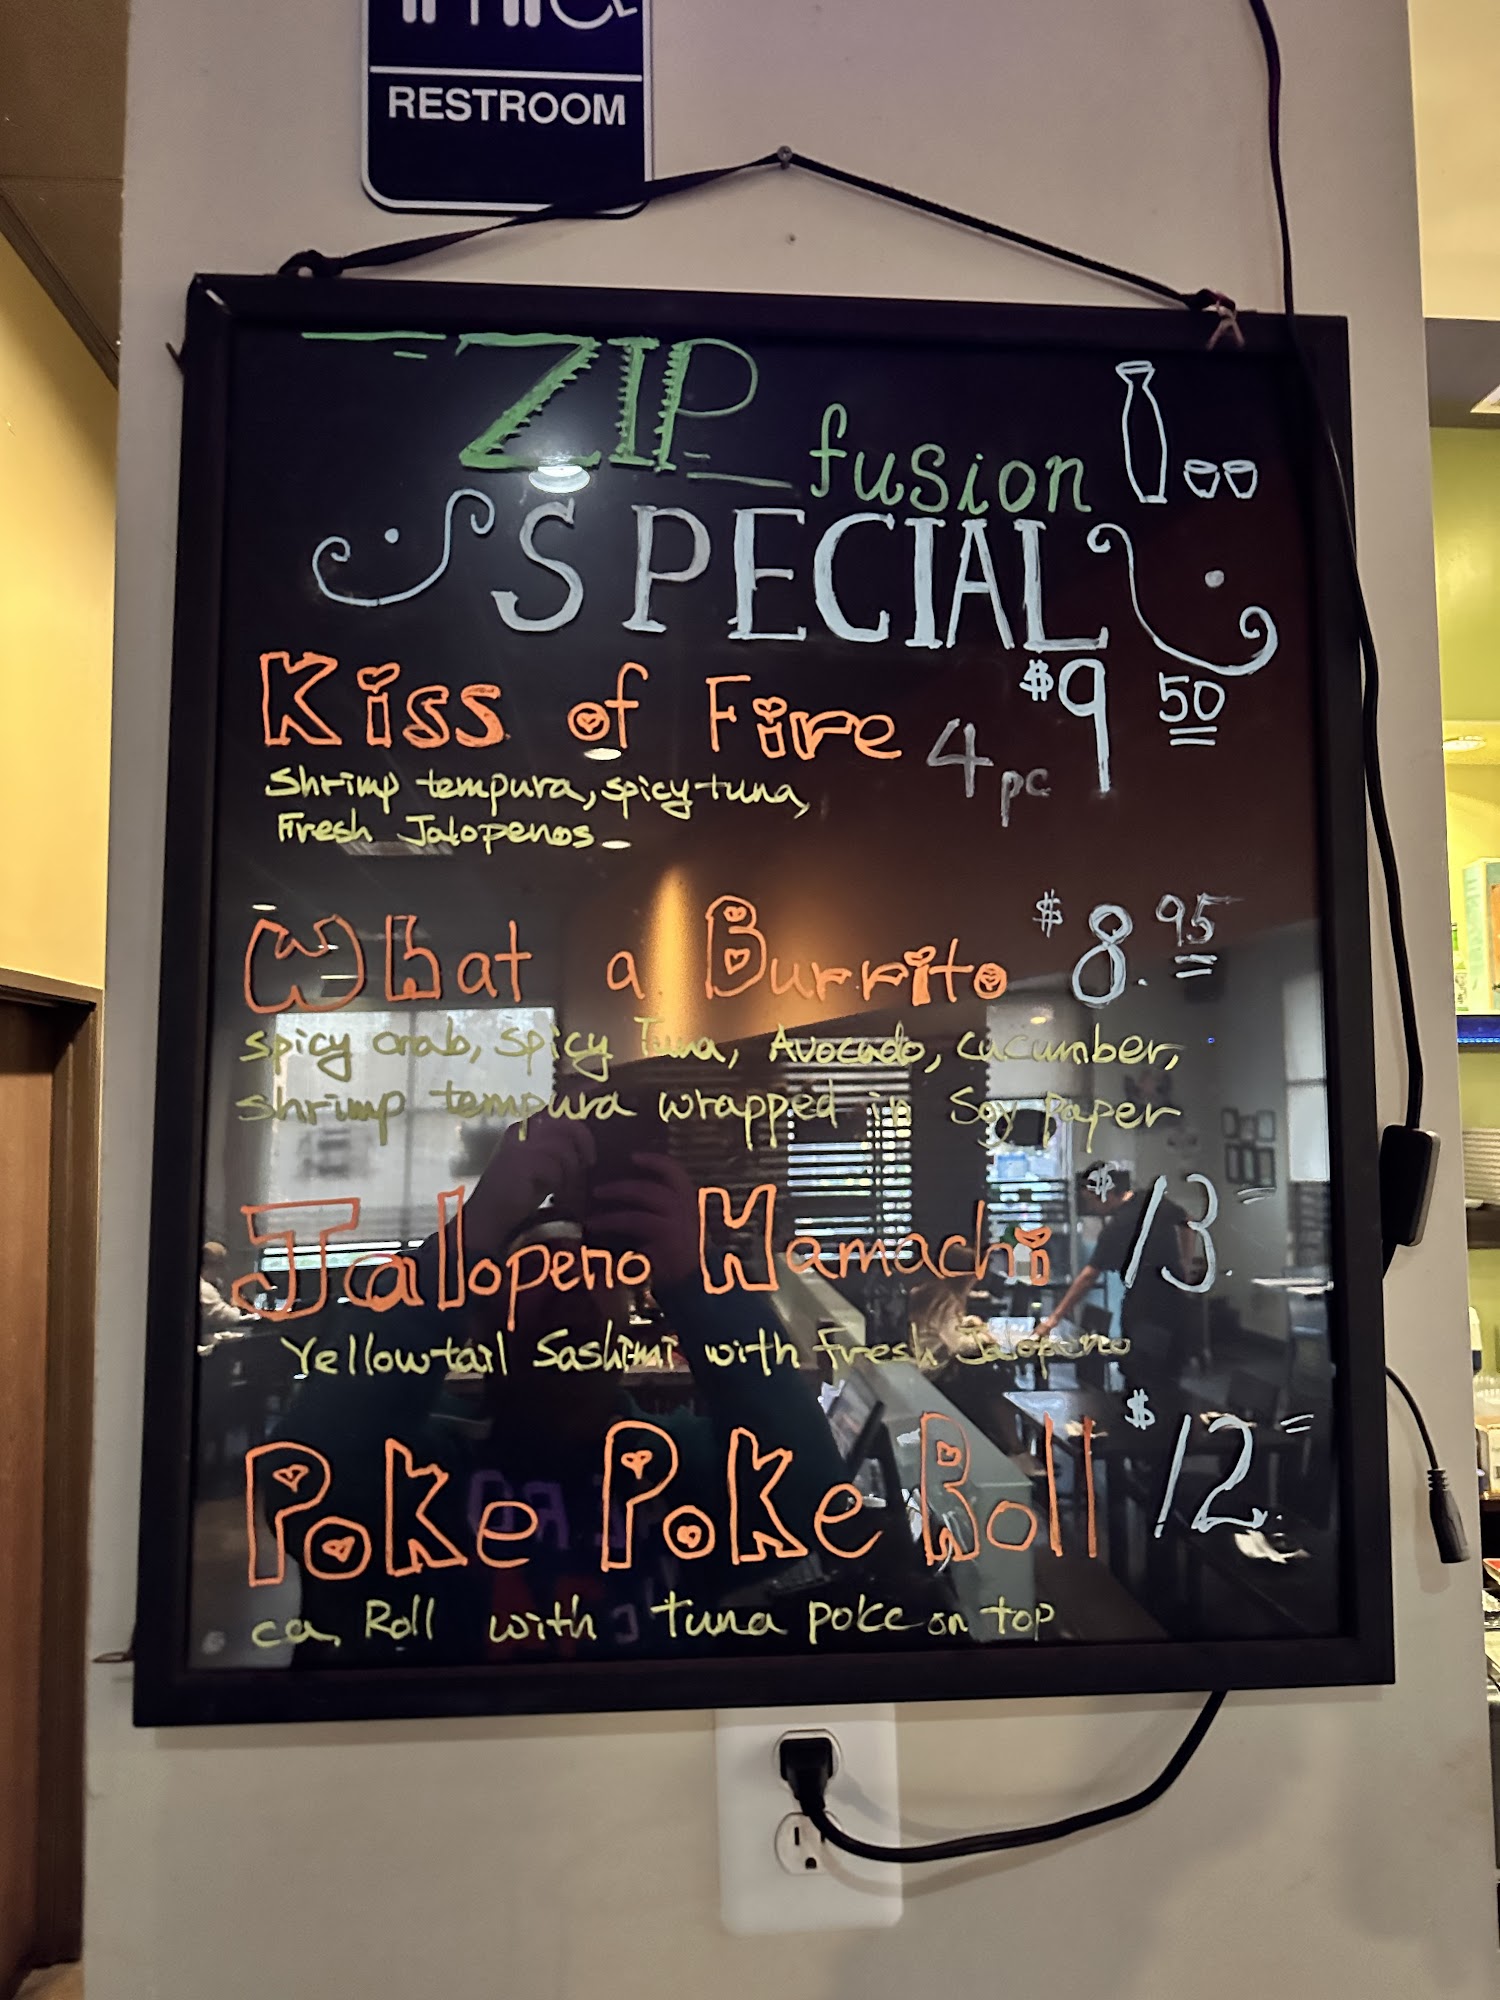 RESTROOM
ZIP fusion
SPECIAL
Kiss of Fire 4pc $9 50
Shrimp tempura, spicy tuna,
Fresh Jalopenos
What a Burrito $8.95
spicy crab, spicy Tuna, Avocado, cucumber,
shrimp tempura wrapped in Soy paper
Jalopeno Hamachi $13
Yellowtail Sashimi with Fresh Jalopeno
Poke Poke Roll $12
ca. Roll with tuna poke on top